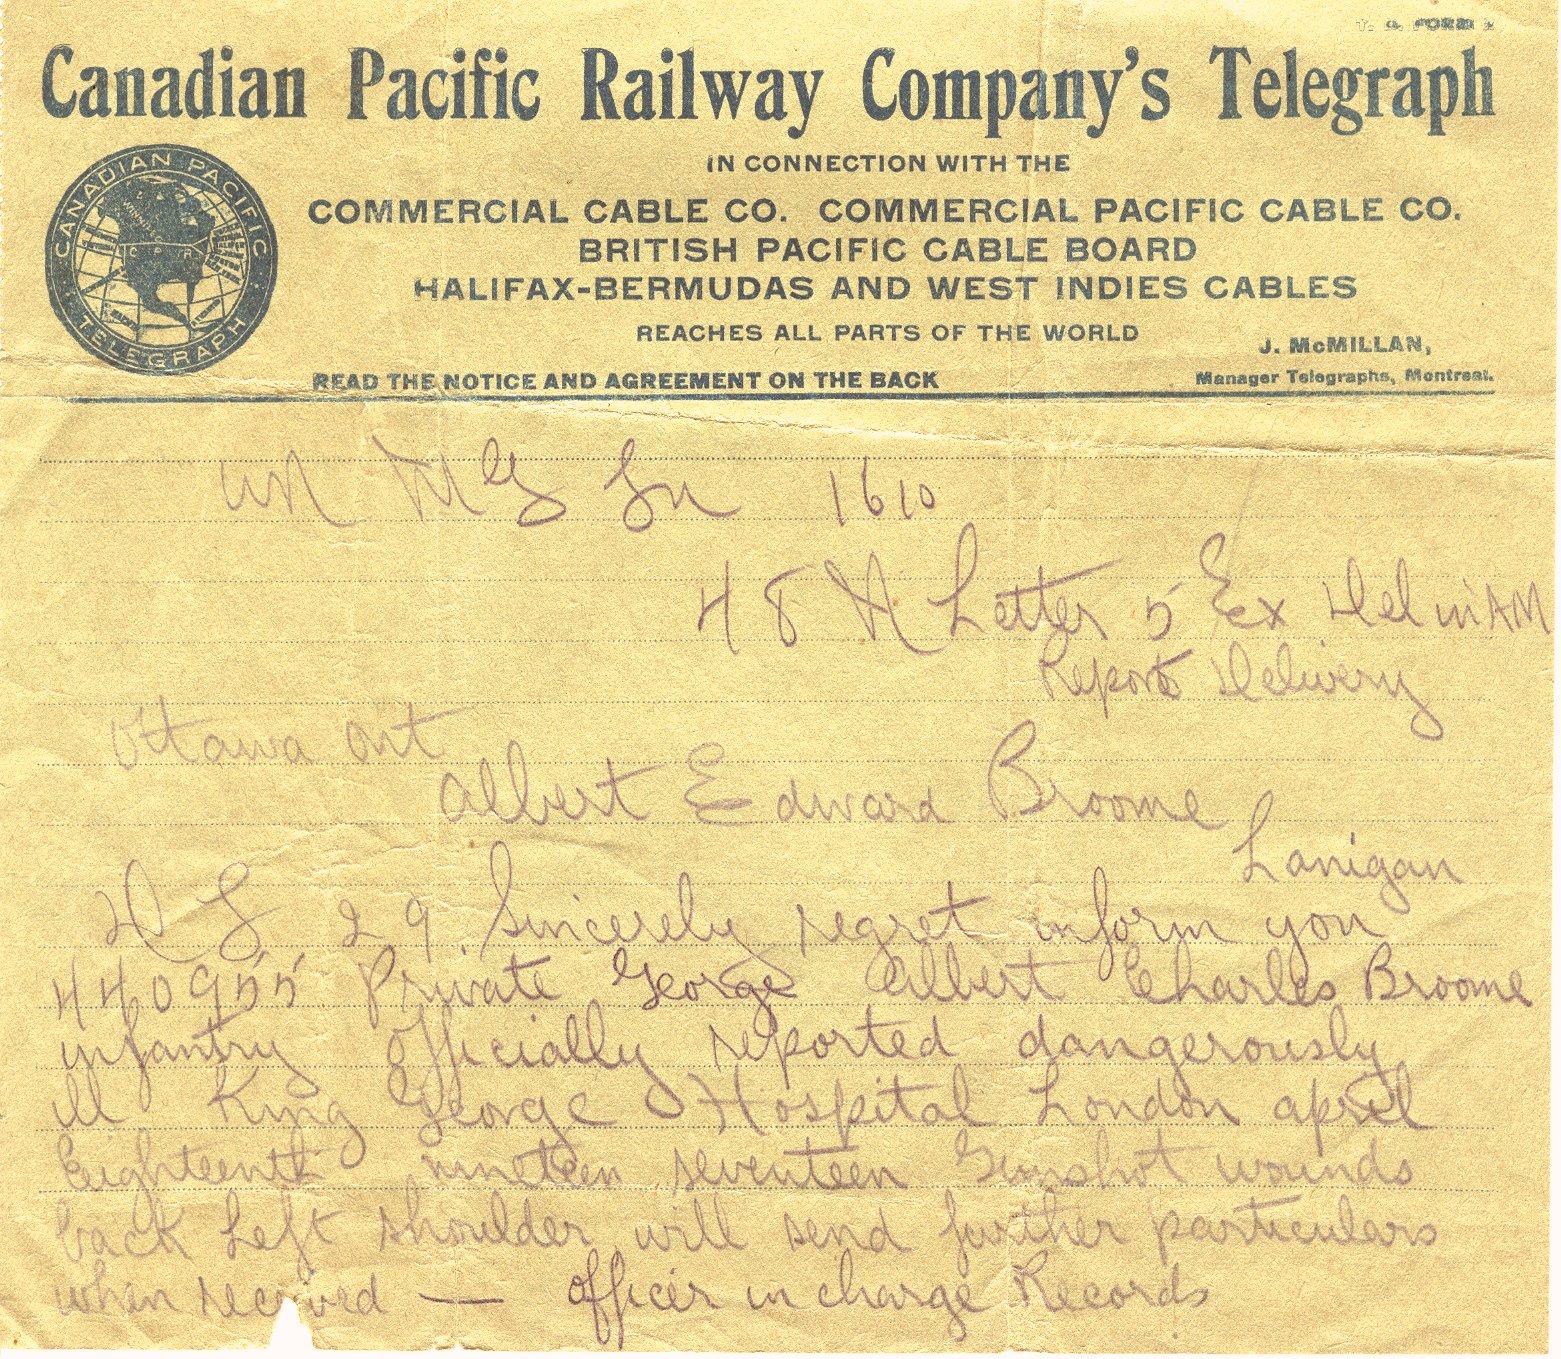 Canadian Pacific Railway Company's Telegraph
IN CONNECTION WITH THE
COMMERCIAL CABLE CO. COMMERCIAL PACIFIC CABLE CO.
BRITISH PACIFIC CABLE BOARD
HALIFAX-BERMUDAS AND WEST INDIES CABLES
REACHES ALL PARTS OF THE WORLD
J. McMILLAN,
READ THE NOTICE AND AGREEMENT ON THE BACK
Manager Telegraphs, Montreal.
CANADIAN PACIFIC
TELEGRAPH
1610
48 N Letter 5 Ex Del in AM
Report Delivery
Ottawa Ont
Albert Edward Broome
Lanigan
29 Sincerely regret inform you
440955 Private George Albert Charles Broome
infantry officially reported dangerously
ill King George Hospital London april
Eighteenth nineteen seventeen Gunshot wounds
back left shoulder will send further particulars
when received — officer in charge Records